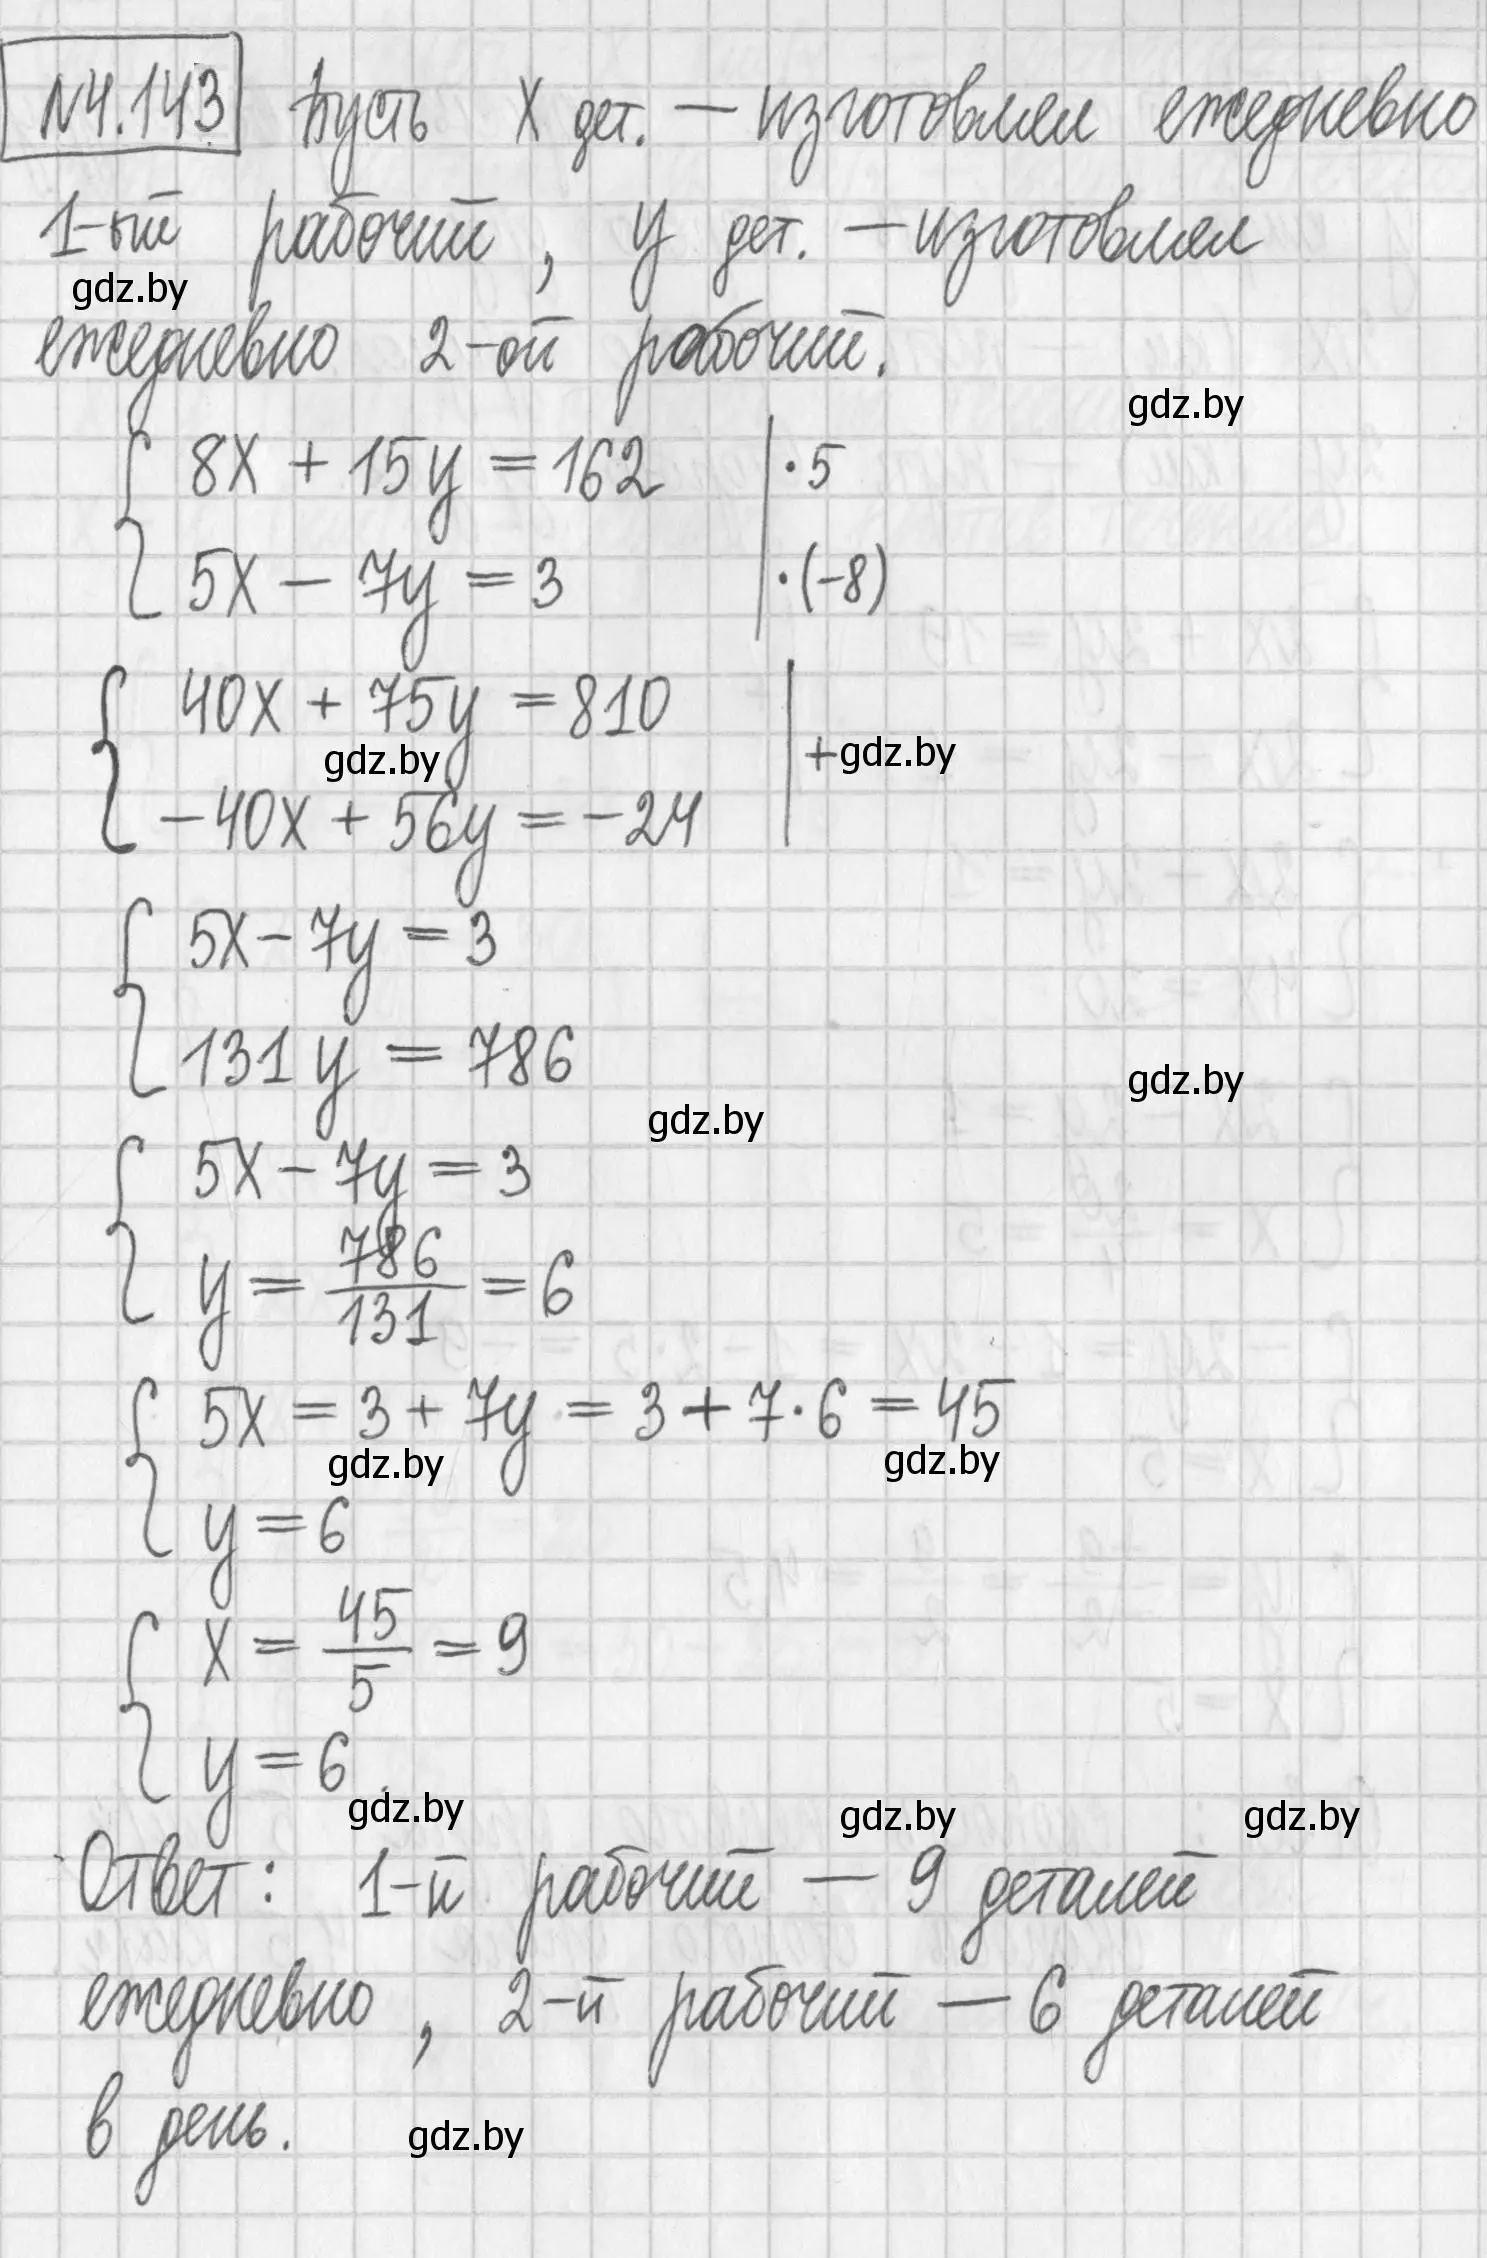 №4.143 Пусть x дет. — изготовлял ежедневно
1-ый рабочий, y дет. — изготовлял
gdz.by
ежедневно 2-ой рабочий.
gdz.by
8x + 15y = 162 | · 5
5x − 7y = 3 | · (−8)
40x + 75y = 810
gdz.by + gdz.by
−40x + 56y = −24
5x − 7y = 3
131y = 786
gdz.by
gdz.by
5x − 7y = 3
y = 786/131 = 6
5x = 3 + 7y = 3 + 7·6 = 45
gdz.by gdz.by
y = 6
x = 45/5 = 9
y = 6
gdz.by gdz.by gdz.by
Ответ: 1-й рабочий — 9 деталей
ежедневно, 2-й рабочий — 6 деталей
в день.
gdz.by